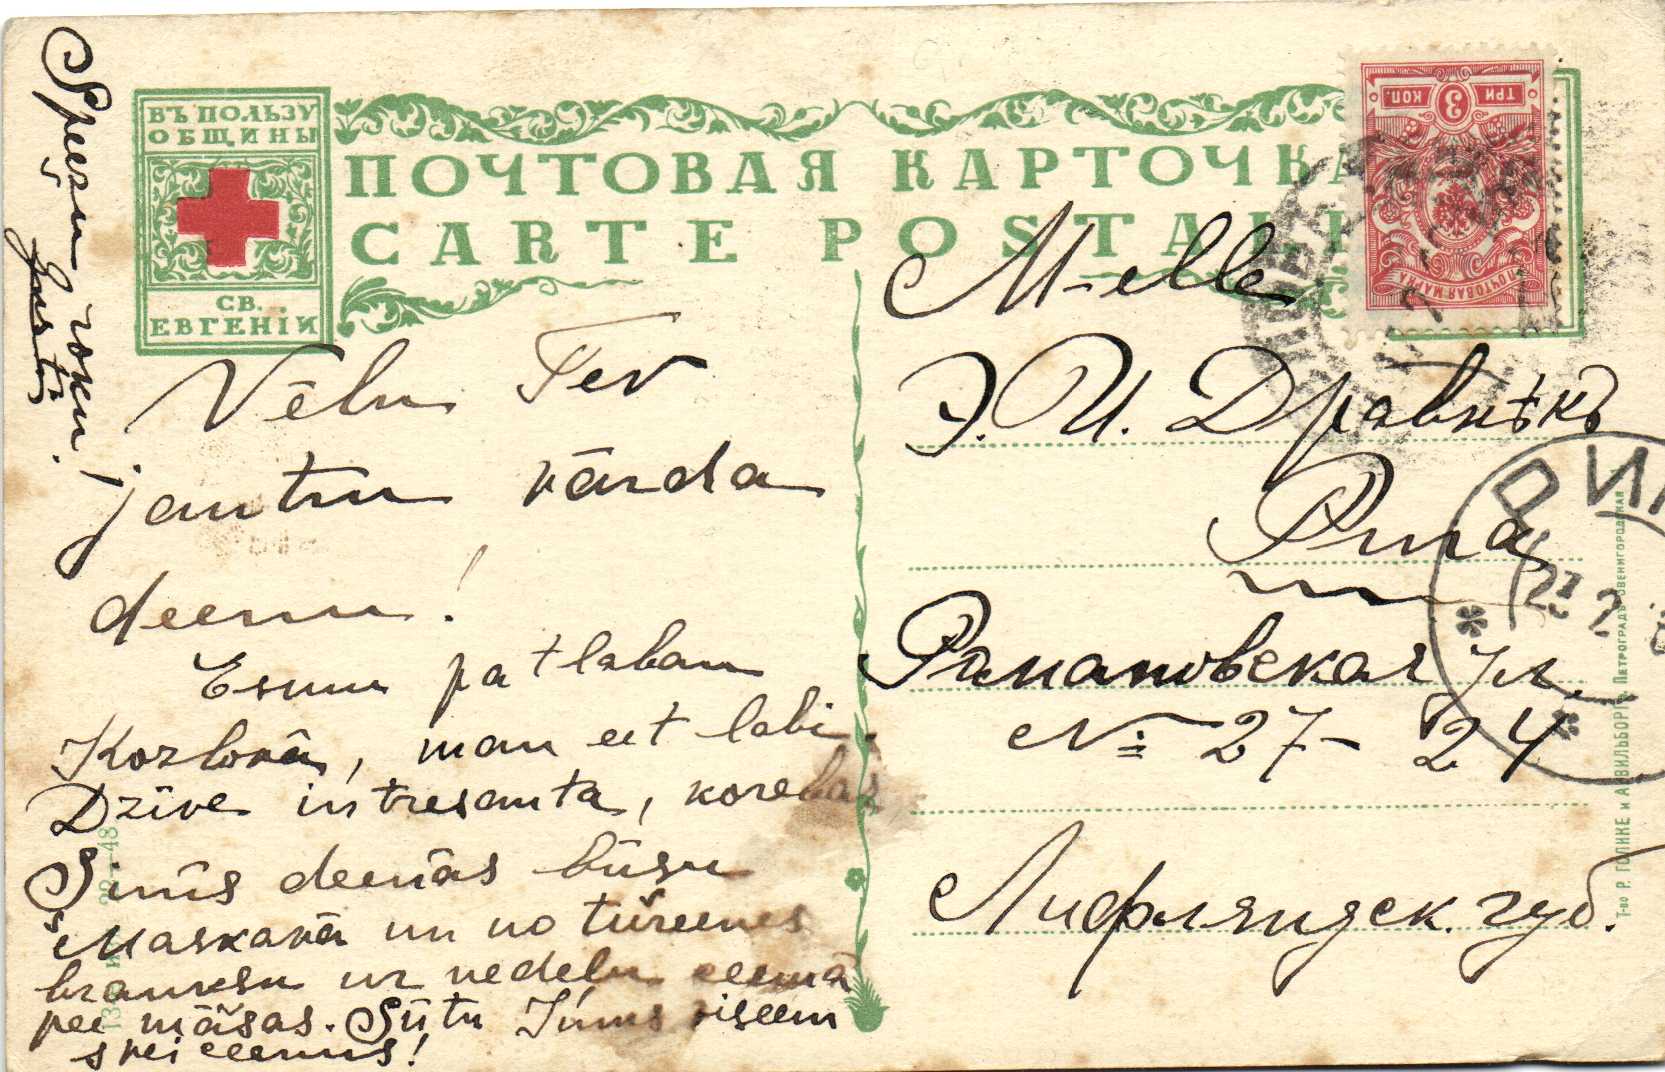 ВЪ ПОЛЬЗУ
ОБЩИНЫ
СВ.
ЕВГЕНІИ
ПОЧТОВАЯ КАРТОЧКА
CARTE POSTALE
ТРИ 3 КОП.
ПОЧТОВАЯ МАРКА
Vēlu Tev
jautru vārda
deenu!
Esmu patlaban
Kozlovā, man eet labi.
Dzīve intresanta,
Šinīs deenās būšu
Maskavā un no tureenes
braukšu uz nedeļu ceemā
pee māsas. Sūtu Jums viseem
sveiceenus!
Speežu roku!
M-elle
Э. И. Дравнѣкъ
Рига
Романовская ул.
№ 27 - 24
Лифляндск. губ.
РИГ
Т-во Р. ГОЛИКЕ и А. ВИЛЬБОРГЪ. ПЕТРОГРАДЪ. ЗВЕНИГОРОДСКАЯ